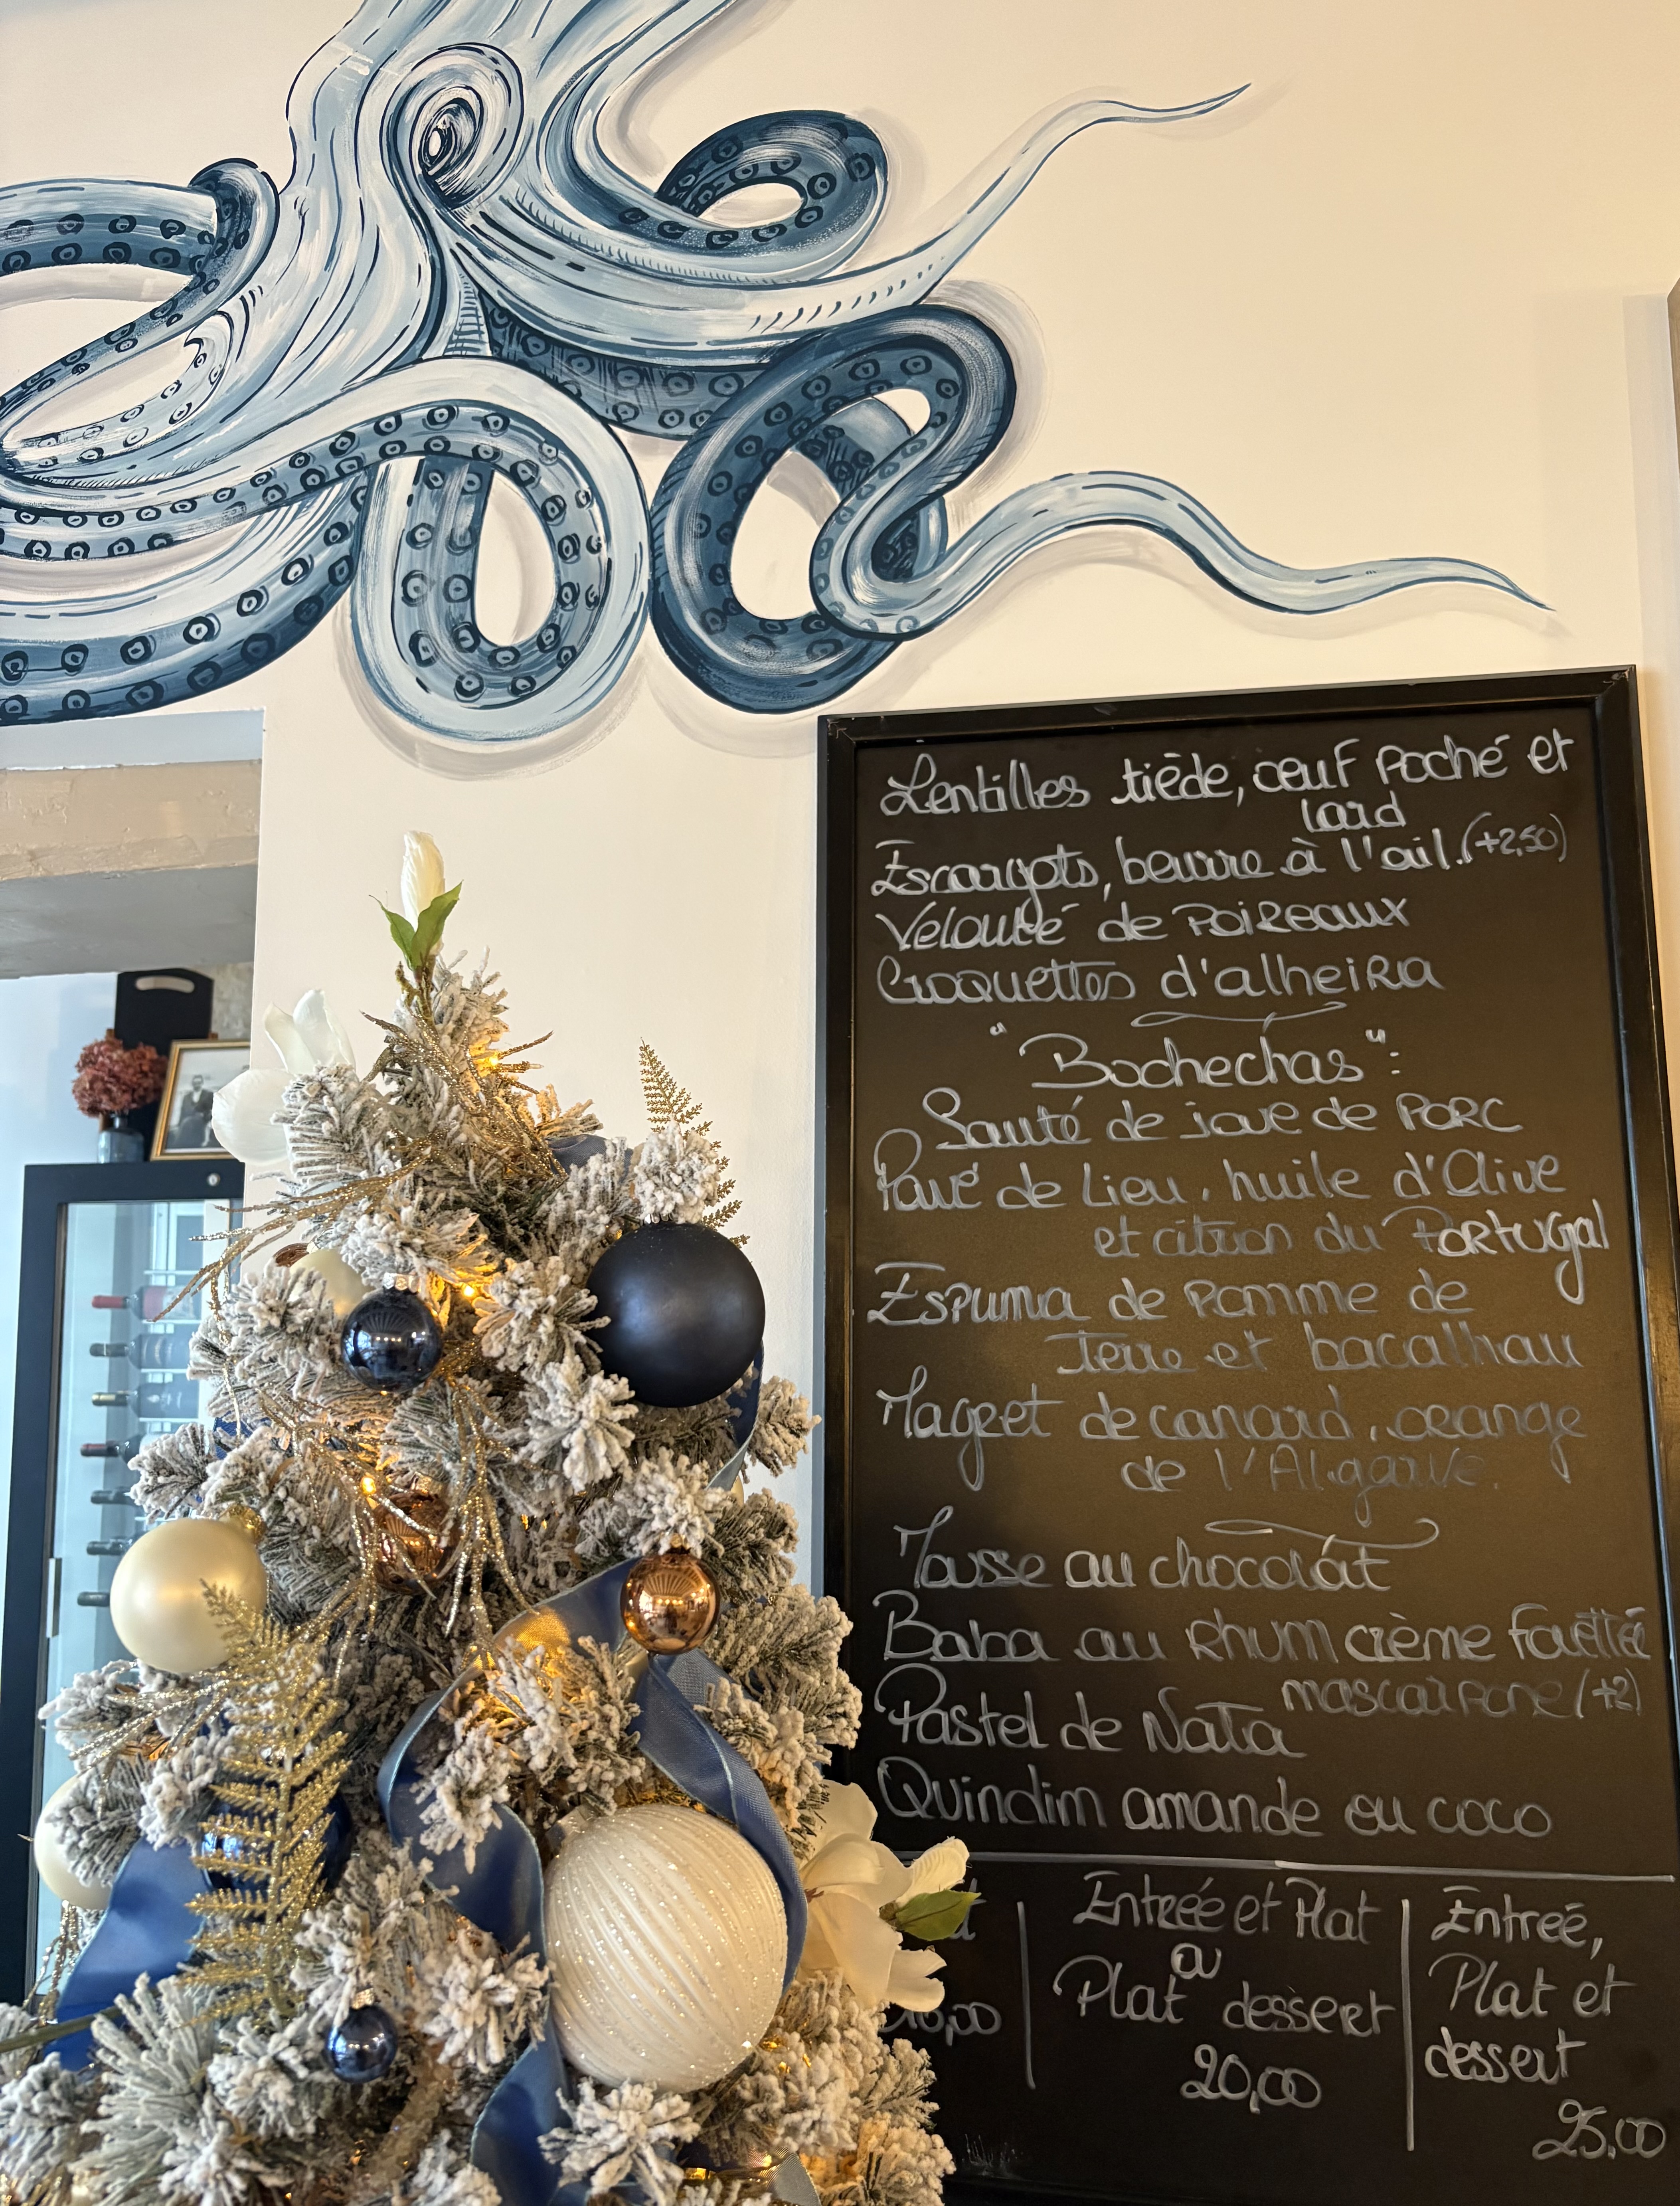 Lentilles tiède, œuf poché et
lard
Escargots, beurre à l'ail.(+2,50)
Velouté de poireaux
Croquettes d'alheira
"Bochechas":
Sauté de joue de porc
Pavé de Lieu, huile d'Olive
et citron du Portugal
Espuma de pomme de
Terre et bacalhau
Magret de canard, orange
de l'Algarve.
Mousse au chocolat
Baba au Rhum crème fouettée
mascarpone (+2)
Pastel de Nata
Quindim amande ou coco
Entreé et Plat
ou
Plat dessert
20,00
Entreé,
Plat et
dessert
25,00